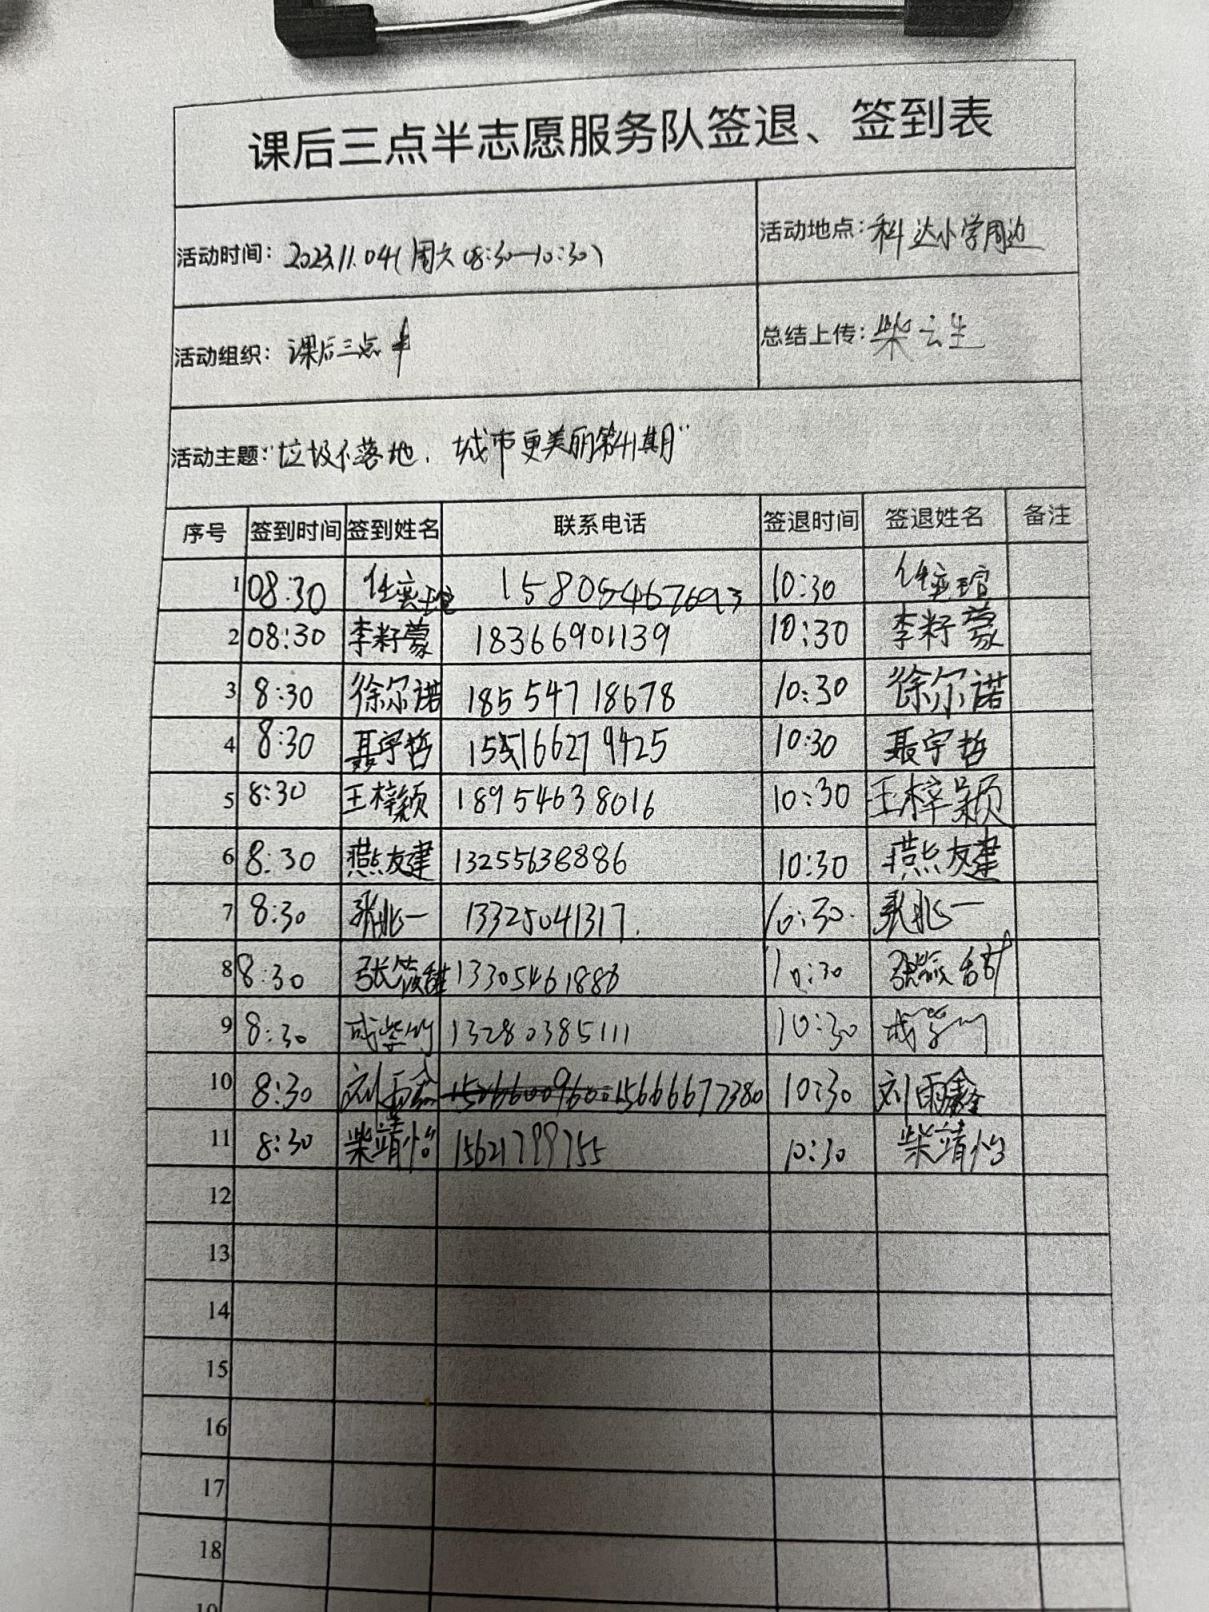 课后三点半志愿服务队签退、签到表
活动时间: 2023.11.04(周六08:30—10:30) 活动地点: 科达小学周边
活动组织: 课后三点半 总结上传: 柴云生
活动主题:"垃圾不落地、城市更美丽第41期"
序号 签到时间 签到姓名 联系电话 签退时间 签退姓名 备注
1 08:30 任奕瑄 10:30 任奕瑄
2 08:30 李籽蒙 18366901139 10:30 李籽蒙
3 8:30 徐尔诺 18554718678 10:30 徐尔诺
4 8:30 聂宇哲 10:30 聂宇哲
5 8:30 王梓颖 18954638016 10:30 王梓颖
6 8:30 燕友建 13255638886 10:30 燕友建
7 8:30 张兆一 13325041317. 10:30. 张兆一
8 8:30 13305461886 10:30
9 8:30 13280385111 10:30
10 8:30 刘雨鑫 15666677380 10:30 刘雨鑫
11 8:30 柴靖怡 15621799755 10:30 柴靖怡
12
13
14
15
16
17
18
19